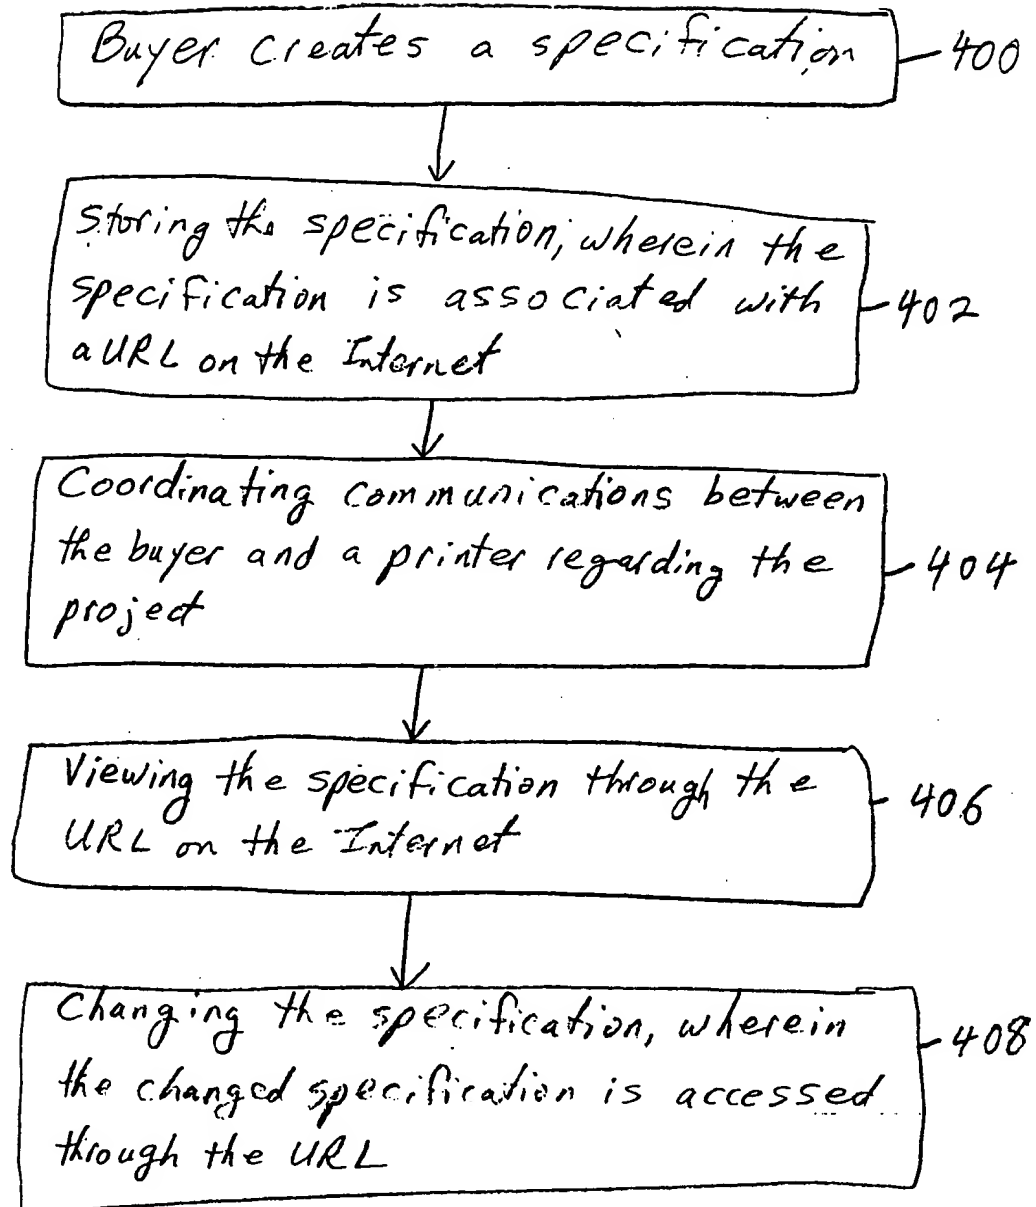 Buyer creates a specification
400
Storing the specification, wherein the
specification is associated with
a URL on the Internet
402
Coordinating communications between
the buyer and a printer regarding the
project
404
Viewing the specification through the
URL on the Internet
406
Changing the specification, wherein
the changed specification is accessed
through the URL
408